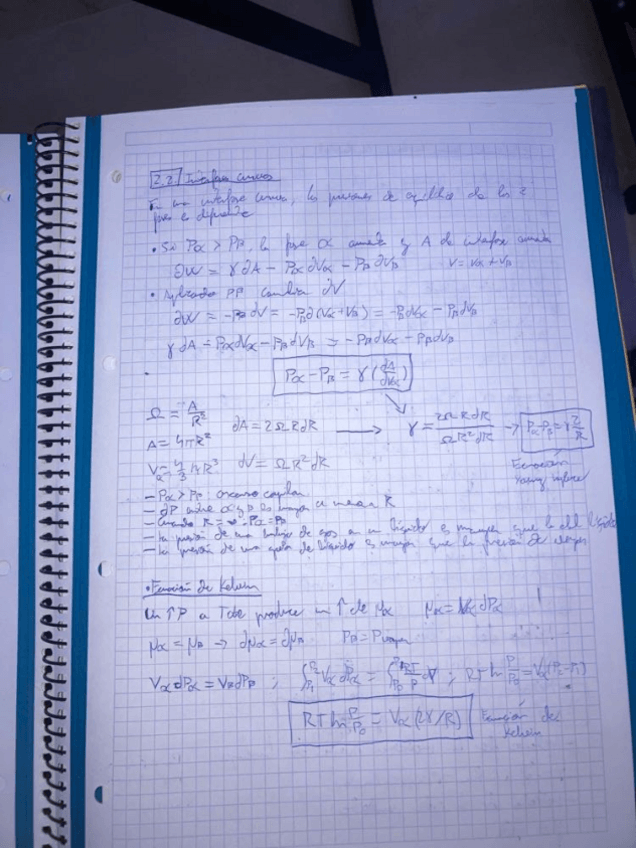 2.2 Interfases curvas
En una interfase curva, las presiones de equilibrio de las 2
fases es diferente
• Si Pα > Pβ, la fase α aumenta y A de interfase aumenta
∂W = γ∂A - Pα∂Vα - Pβ∂Vβ V = Vα + Vβ
• Aplicado Pβ cambia ∂V
∂W = -Pβ∂V = -Pβ∂(Vα+Vβ) = -Pβ∂Vα - Pβ∂Vβ
γ∂A - Pα∂Vα - Pβ∂Vβ = -Pβ∂Vα - Pβ∂Vβ
Pα - Pβ = γ(∂A/∂Vα)
Ω = A/R² ∂A = 2ΩR∂R → γ = 2ΩR∂R/ΩR²∂R → Pα-Pβ = γ 2/R
A = 4πR²
Vα = 4/3 πR³ ∂V = ΩR²∂R Ecuación
- Pα > Pβ Young Laplace
- ∂P entre α y β es mayor a menor R
- Cuando R = ∞ Pα = Pβ
- La presión de una burbuja de gas en un líquido es mayor que la del líquido
- La presión de una gota de líquido es mayor que la presión de
• Ecuación de Kelvin
Un ↑P a Tcte produce un ↑ de μα μα = Vα∂Pα
μα = μβ → ∂μα = ∂μβ Pβ = Pvapor
Vα∂Pα = Vβ∂Pβ ; ∫ Vα∂Pα = ∫ RT/P ∂P ; RT ln P/P₀ = Vα(P₂-P₁)
RT ln P/P₀ = Vα(2γ/R) Ecuación de
Kelvin